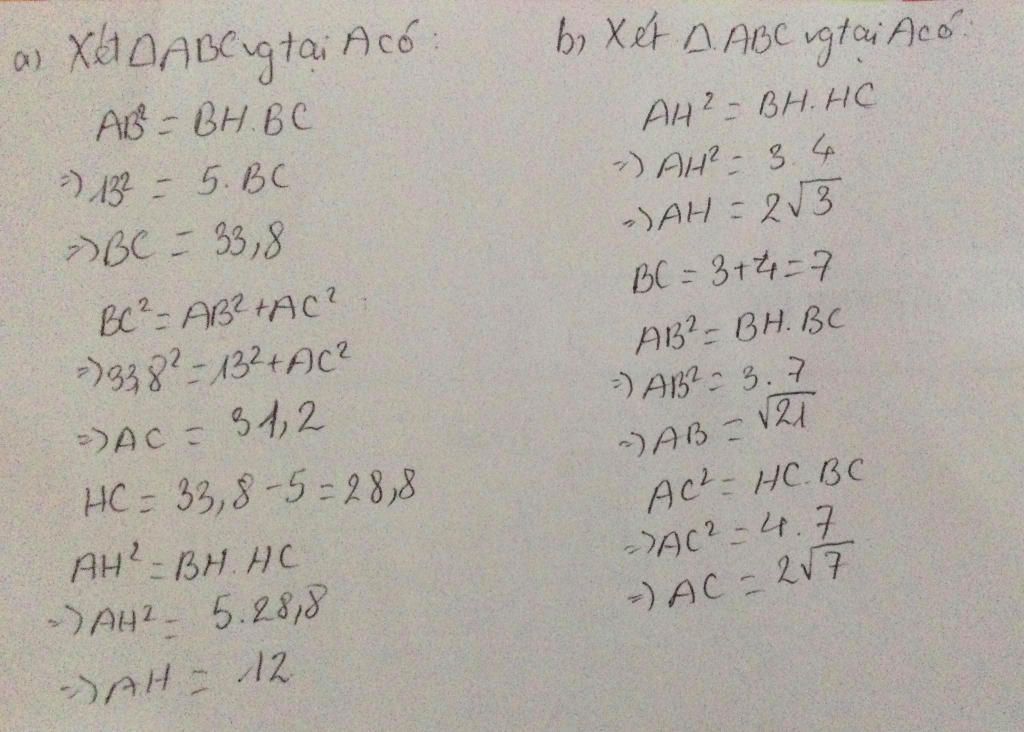 a) Xét △ABC vg tại A có:
AB² = BH.BC
=> 13² = 5.BC
=> BC = 33,8
BC² = AB² + AC²
=> 33,8² = 13² + AC²
=> AC = 31,2
HC = 33,8 - 5 = 28,8
AH² = BH.HC
=> AH² = 5.28,8
=> AH = 12
b) Xét △.ABC vg tại A có:
AH² = BH.HC
=> AH² = 3.4
=> AH = 2√3
BC = 3+4 = 7
AB² = BH.BC
=> AB² = 3.7
=> AB = √21
AC² = HC.BC
=> AC² = 4.7
=> AC = 2√7